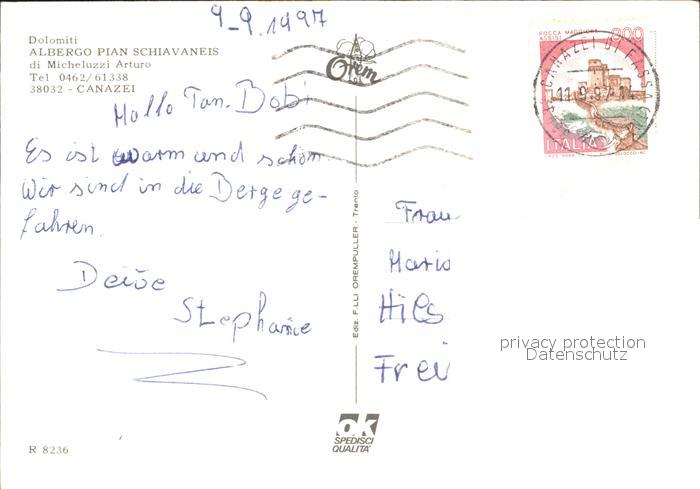 9-9.1997
Dolomiti
ALBERGO PIAN SCHIAVANEIS
di Micheluzzi Arturo
Tel 0462/61338
38032 - CANAZEI
Hallo Tan. Bobi
Es ist warm und schön
Wir sind in die Berge ge-
fahren.
Deive
Stephanie
R 8236
Orem
Ediz. F.LLI OREMPULLER - Trento
ok
SPEDISCI
QUALITA'
ROCCA MAGGIORE
ASSISI
800
ITALIA
CANAZEI DI FASSA
11.9.97
Frau
Mario
Hils
Frei
privacy protection
Datenschutz